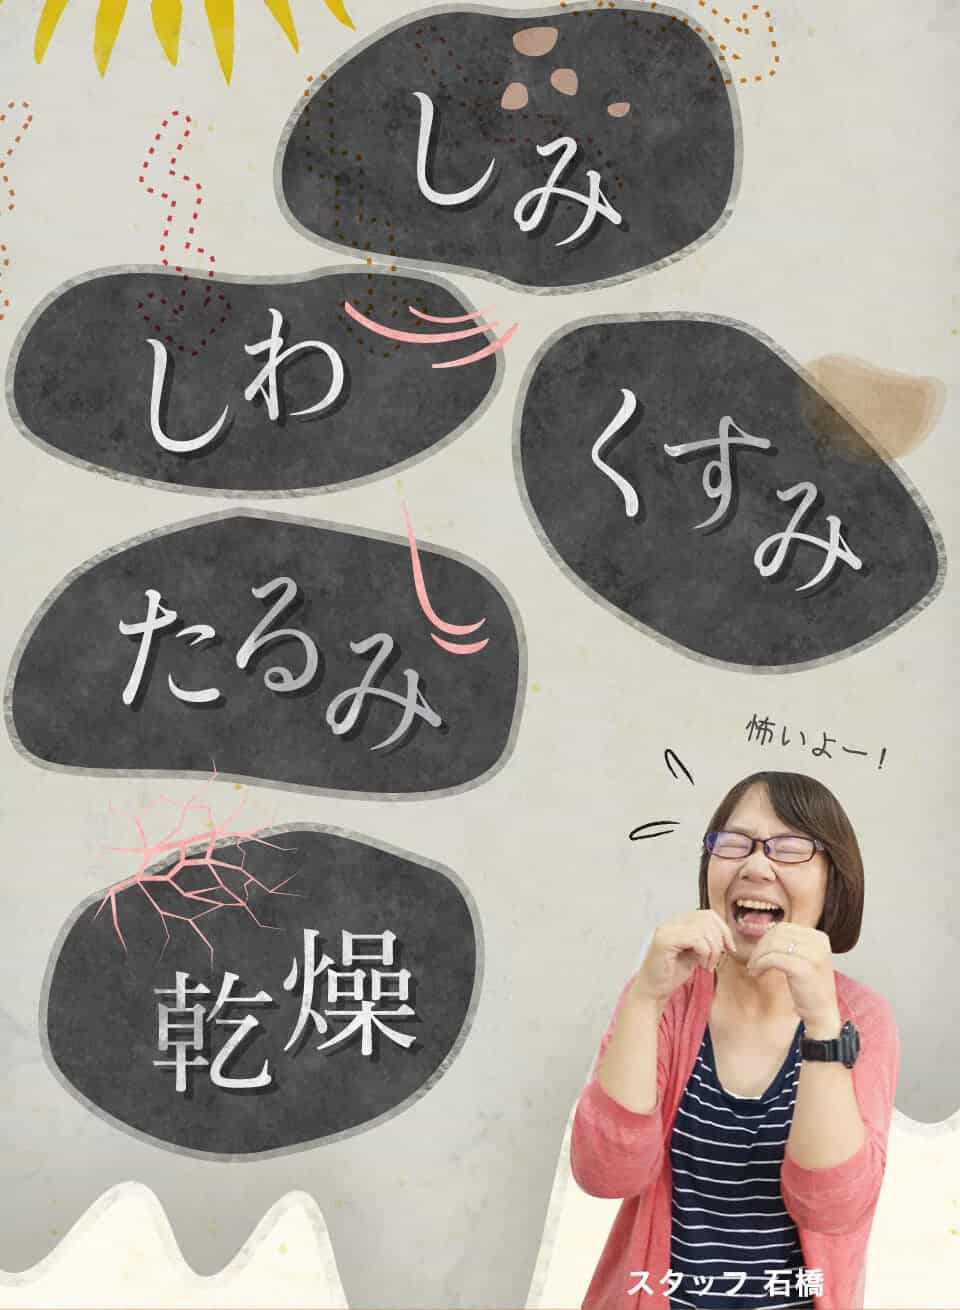 しみ
しわ
くすみ
たるみ
乾燥
怖いよー！
スタッフ 石橋